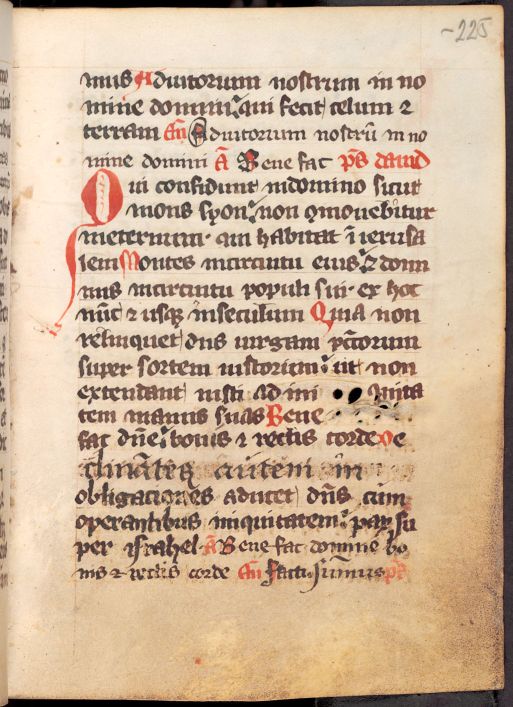 -225
mus Adiutorium nostrum in no
mine domini: qui fecit celum ⁊
terram An̄ Adiutorium nostrū in no
mine domini Ā Bene fac p̄s dauid
Qui confidunt indomino sicut
mons syon: non ꝯmouebitur
ineternum· qui habitat ī ierusa
lem Montes incircuitu eius: ⁊ domi
nus incircuitu populi sui· ex hoc
nūc ⁊ usqꝫ inseculum Quia non
relinquet dn̄s uirgam pc̄torum
super sortem iustorum: ut non
extendant iusti ad ini quita
tem manus suas Bene
fac dn̄e: bonis ⁊ rectis corde De
clinātes autem in
obligaciones aducet dn̄s cum
operantibus iniquitatem: pax su
per israhel· Ā Bene fac domine bo
nis ⁊ rectis corde An̄ facti sumus p̄s